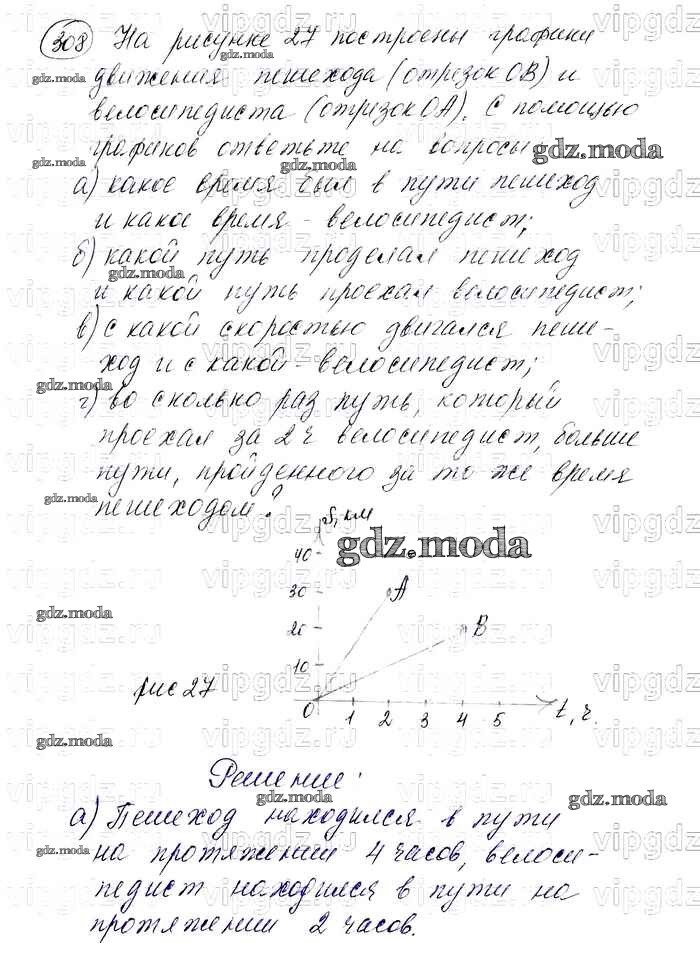 308 На рисунке 27 построены графики
движения пешехода (отрезок OB) и
велосипедиста (отрезок OA). С помощью
графиков ответьте на вопросы
а) какое время был в пути пешеход
и какое время - велосипедист;
б) какой путь проделал пешеход
и какой путь проехал велосипедист;
в) с какой скоростью двигался пеше-
ход и с какой - велосипедист;
г) во сколько раз путь, который
проехал за 2 ч велосипедист, больше
пути, пройденного за то же время
пешеходом?
S, км
40
30 A
20 B
10
рис 27
0 1 2 3 4 5 t, ч.
Решение:
а) Пешеход находился в пути
на протяжении 4 часов, велоси-
педист находился в пути на
протяжении 2 часов.
gdz.moda
vipgdz.ru